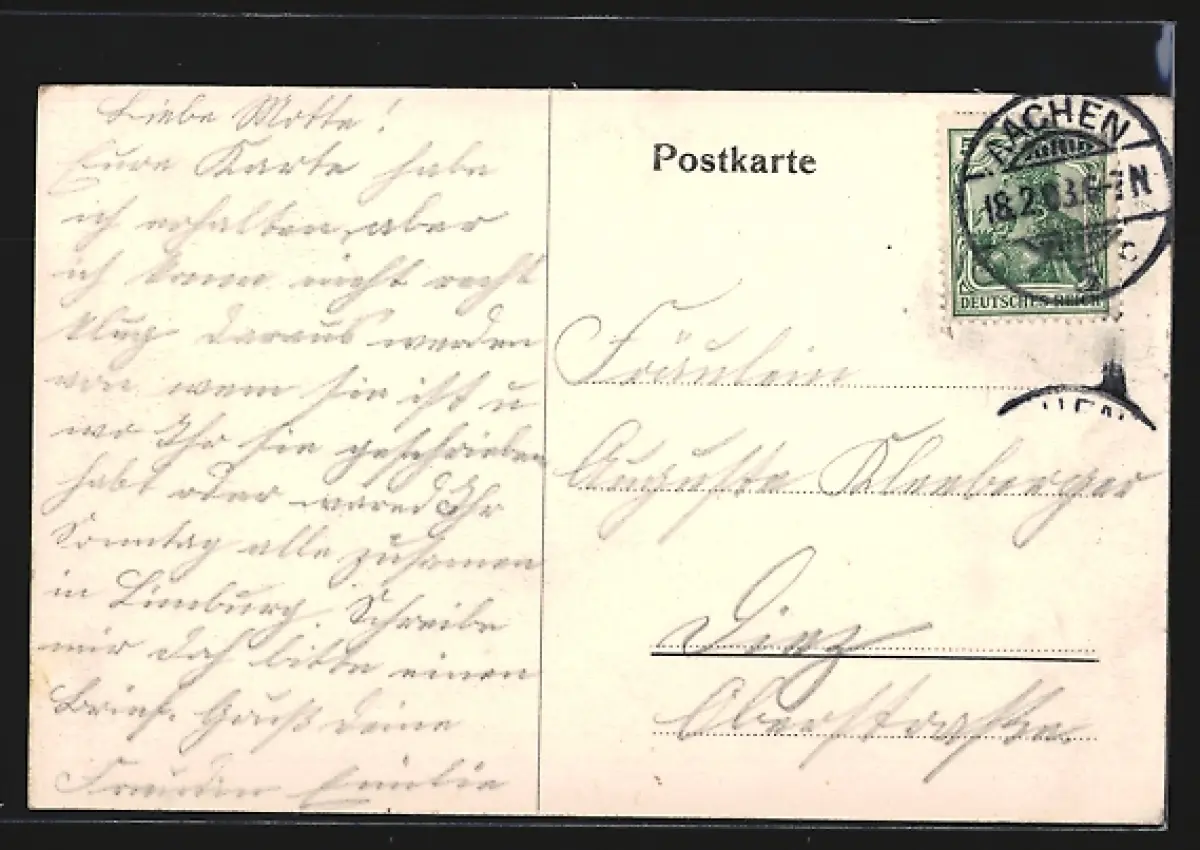 Liebe Motte!
Eure Karte habe
ich erhalten, aber
ich kann nicht recht
klug daraus werden
von wem sie ist u
wo Ihr sie geschrieben
habt oder wared Ihr
Sonntag alle zusamen
in Limburg. Schreibe
mir doch bitte einen
Brief. Gruß deine
Freundin Emilie
Postkarte
AACHEN
18.2.03.6-7N
2 c
5
DEUTSCHES REICH
HEN
Fräulein
Auguste Kleeberger
Diez
Oberstraße